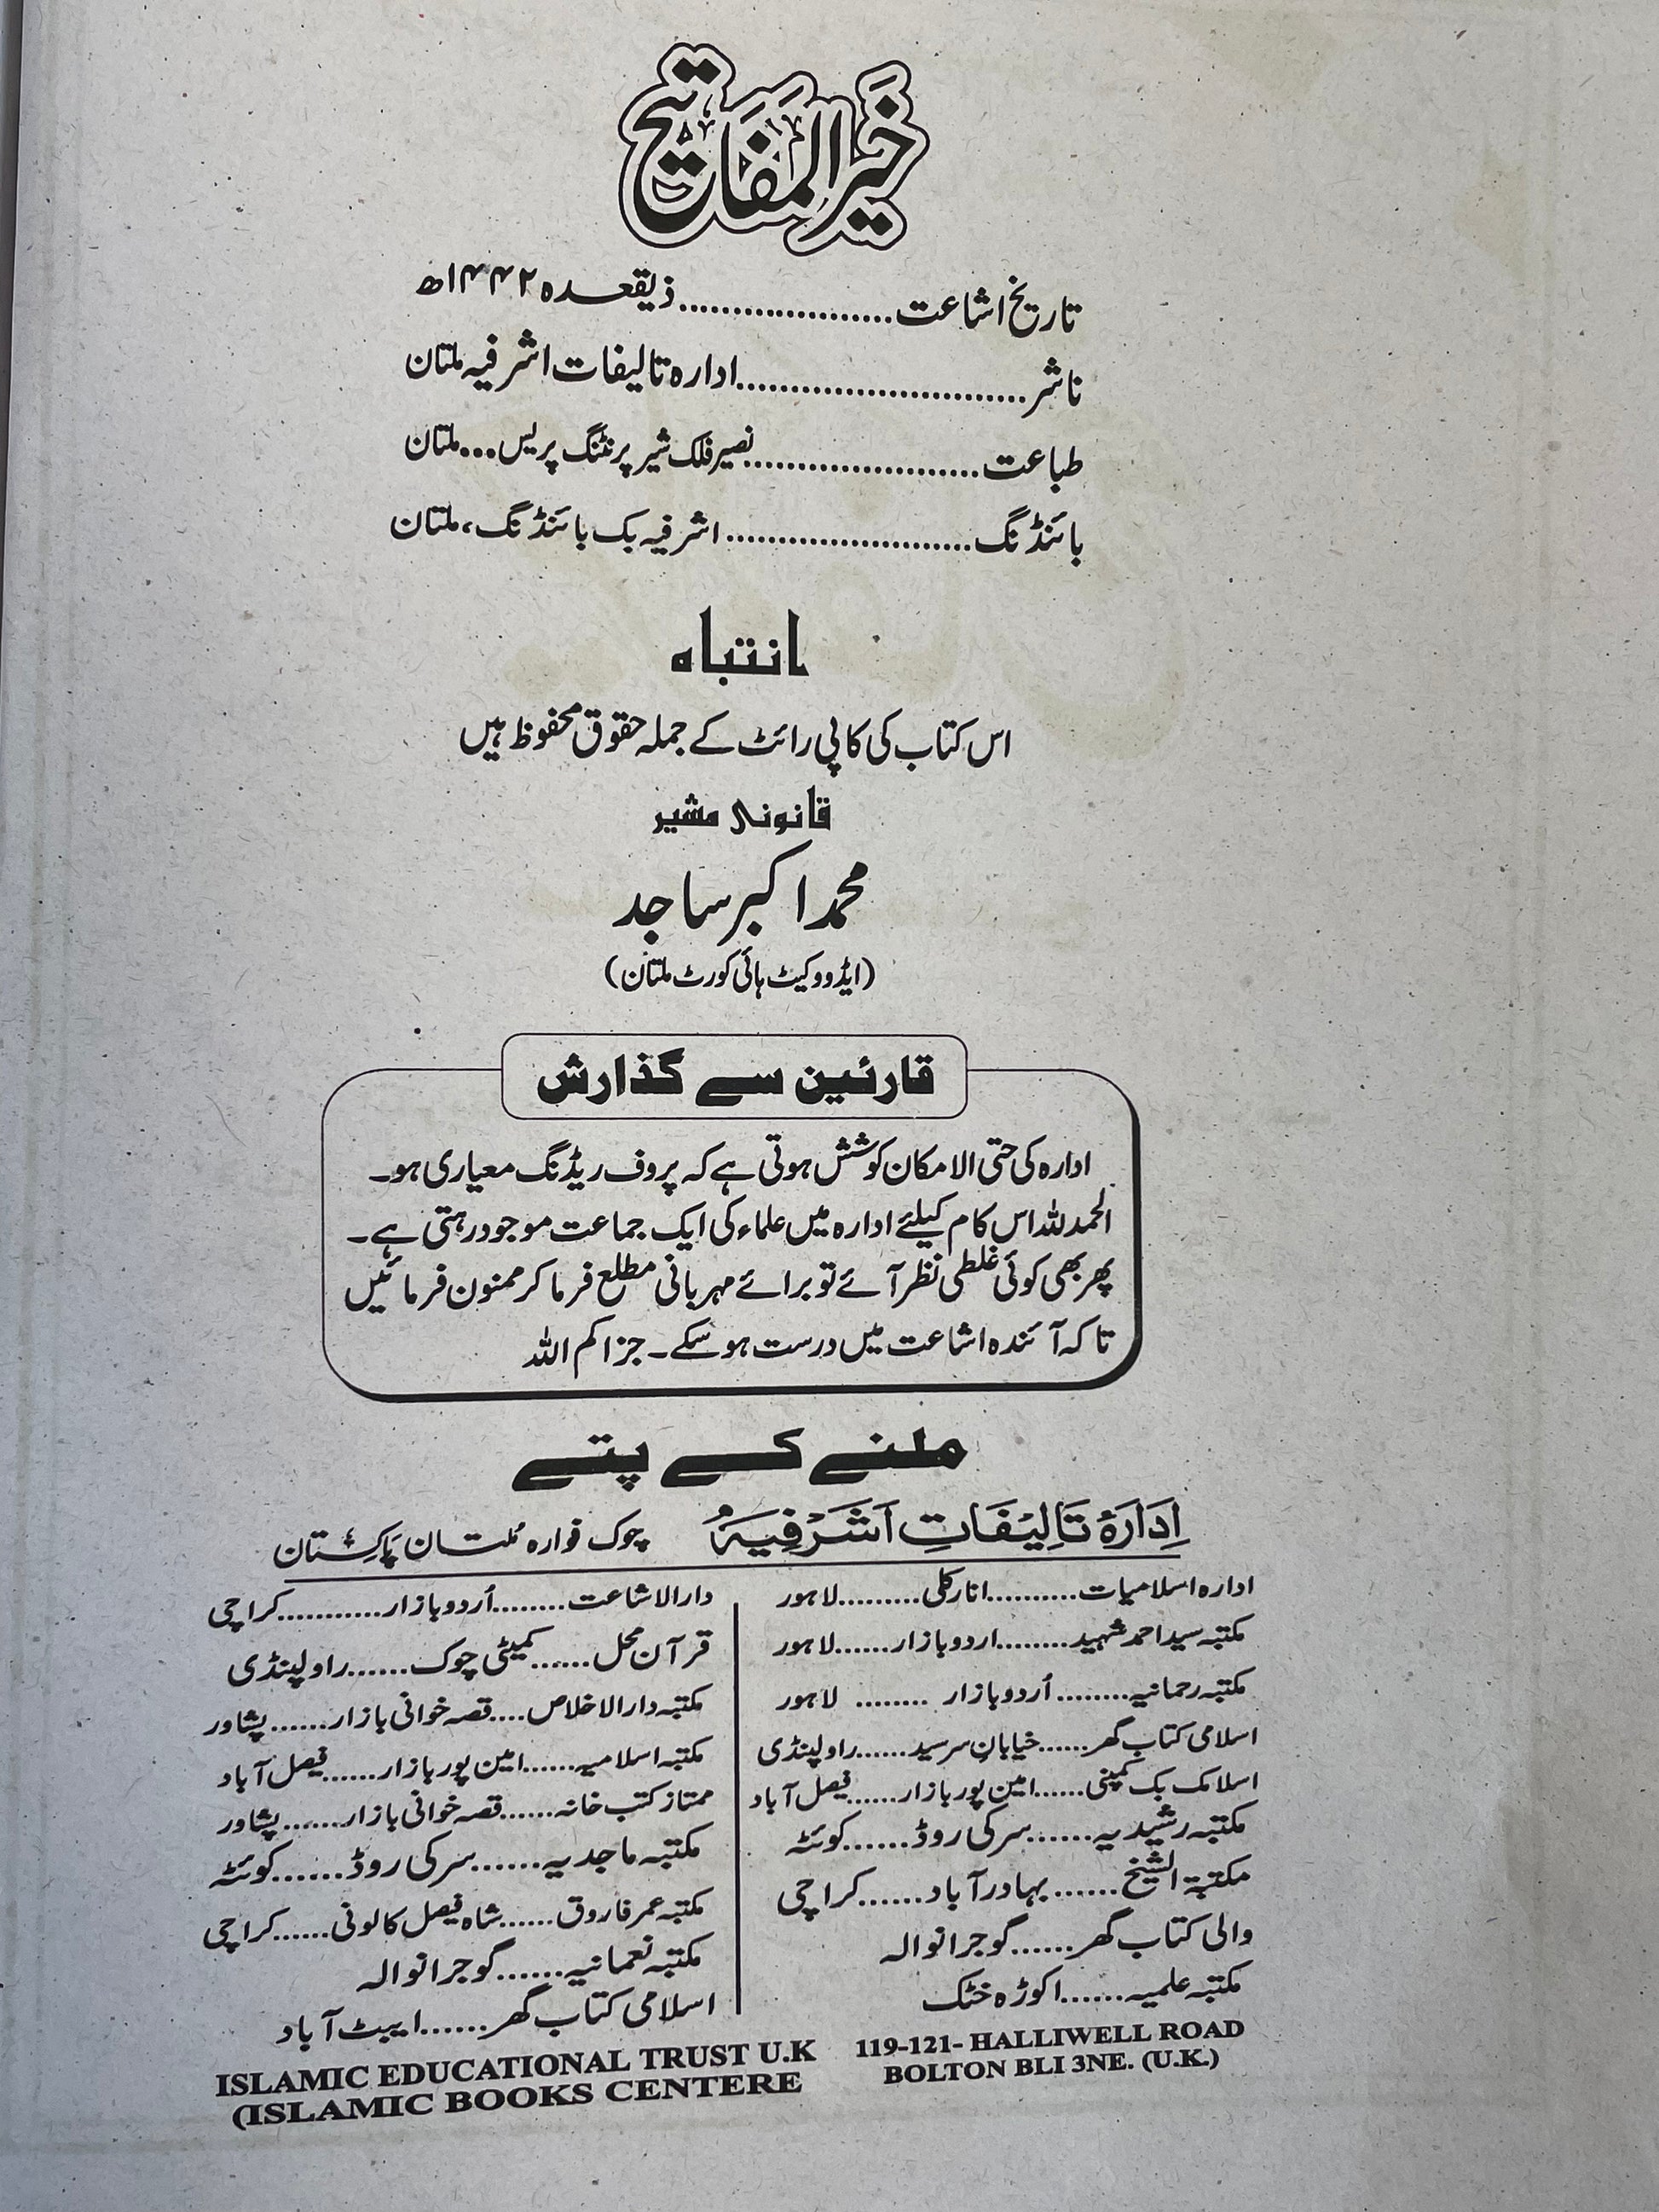 خَیرُ المَفَاتیح
تاریخ اشاعت.....................ذیقعدہ ۱۴۴۲ھ
ناشر............................ادارہ تالیفات اشرفیہ ملتان
طباعت.......................نصیر فلک شیر پرنٹنگ پریس...ملتان
بائنڈنگ........................اشرفیہ بک بائنڈنگ، ملتان
انتباہ
اس کتاب کی کاپی رائٹ کے جملہ حقوق محفوظ ہیں
قانونی مشیر
محمد اکبر ساجد
(ایڈووکیٹ ہائی کورٹ ملتان)
قارئین سے گذارش
ادارہ کی حتی الامکان کوشش ہوتی ہے کہ پروف ریڈنگ معیاری ہو۔
الحمدللہ اس کام کیلئے ادارہ میں علماء کی ایک جماعت موجود رہتی ہے۔
پھر بھی کوئی غلطی نظر آئے تو برائے مہربانی مطلع فرما کر ممنون فرمائیں
تاکہ آئندہ اشاعت میں درست ہو سکے۔ جزاکم اللہ
ملنے کے پتے
اِدَارَۂ تَالِیْفَاتِ اَشَرْفِیَہُ چوک فوارہ مُلتان پَاکِستان
ادارہ اسلامیات..........انارکلی.........لاہور
مکتبہ سید احمد شہید........اردو بازار......لاہور
مکتبہ رحمانیہ........اُردو بازار ........ لاہور
اسلامی کتاب گھر......خیابان سرسید......راولپنڈی
اسلامک بک کمپنی......امین پور بازار......فیصل آباد
مکتبہ رشیدیہ.......سرکی روڈ......کوئٹہ
مکتبۃ الشیخ.......بہادر آباد.......کراچی
والی کتاب گھر.......گوجرانوالہ
مکتبہ علمیہ.......اکوڑہ خٹک
دارالاشاعت........اُردو بازار............کراچی
قرآن محل......کمیٹی چوک.......راولپنڈی
مکتبہ دارالاخلاص....قصہ خوانی بازار......پشاور
مکتبہ اسلامیہ......امین پور بازار......فیصل آباد
ممتاز کتب خانہ......قصہ خوانی بازار......پشاور
مکتبہ ماجدیہ.......سرکی روڈ.......کوئٹہ
مکتبہ عمر فاروق......شاہ فیصل کالونی......کراچی
مکتبہ نعمانیہ.......گوجرانوالہ
اسلامی کتاب گھر.......ایبٹ آباد
ISLAMIC EDUCATIONAL TRUST U.K
(ISLAMIC BOOKS CENTERE
119-121- HALLIWELL ROAD
BOLTON BLI 3NE. (U.K.)